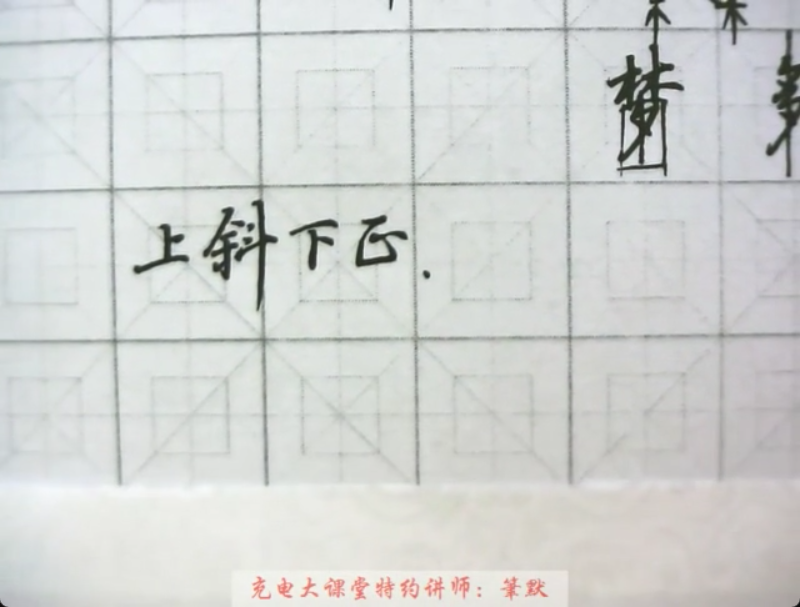 梦
上斜下正.
充电大课堂特约讲师：筆默